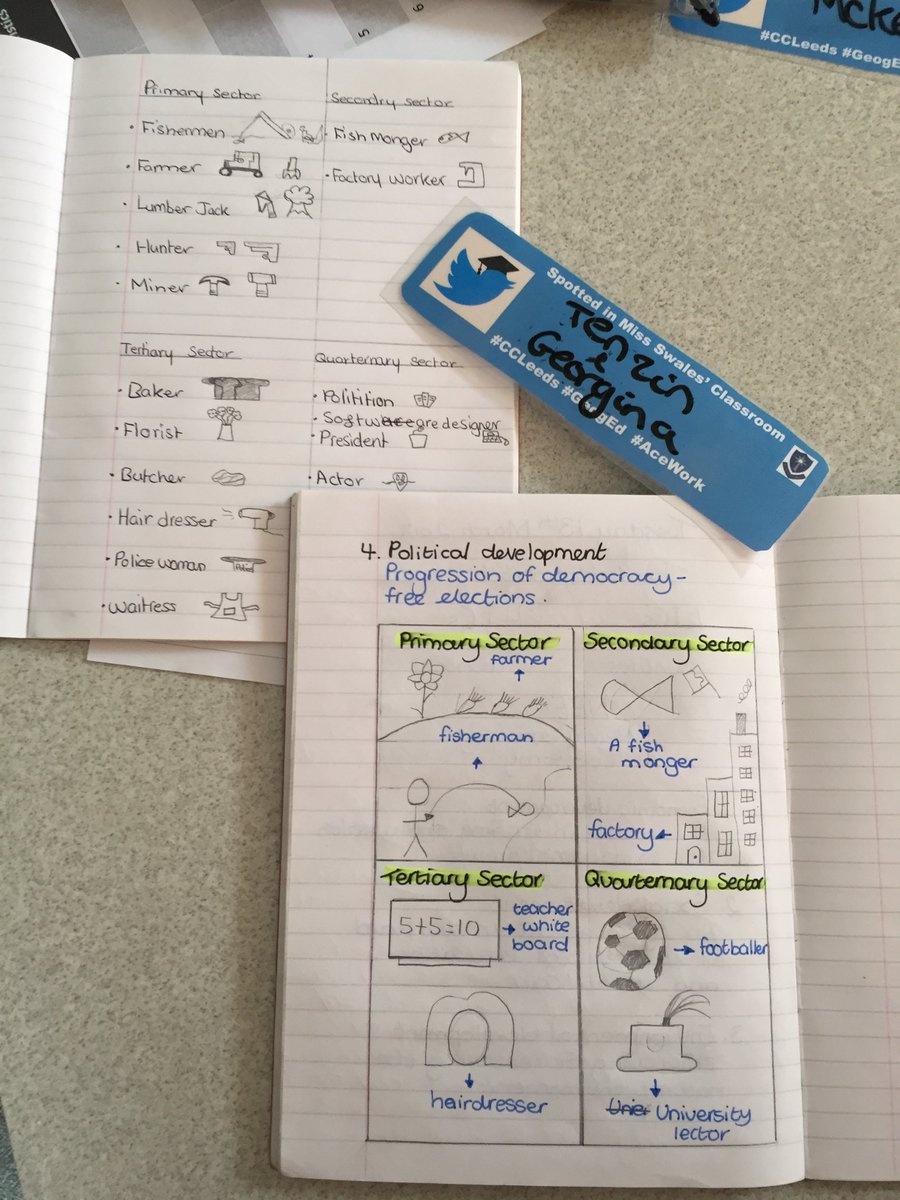 istics
5
6
McKe
#CCLeeds #GeogE
Primary Sector
· Fishermen
· Farmer
· Lumber Jack
· Hunter
· Miner
Secondry sector
· Fish Monger
· Factory worker
Tertiary Sector
· Baker
· Florist
· Butcher
· Hair dresser
· Police woman
· Waitress
Quarternary Sector
· Polition
· Software designer
· President
· Actor
Spotted in Miss Swales' Classroom
Tenzin
+
Georgina
#CCLeeds #GeogEd #AceWork
4. Political development
Progression of democracy-
free elections.
Primary Sector
farmer
fisherman
Secondary Sector
A fish
monger
factory
Tertiary Sector
5+5=10
teacher
white
board
hairdresser
Quarternary Sector
footballer
University
lector